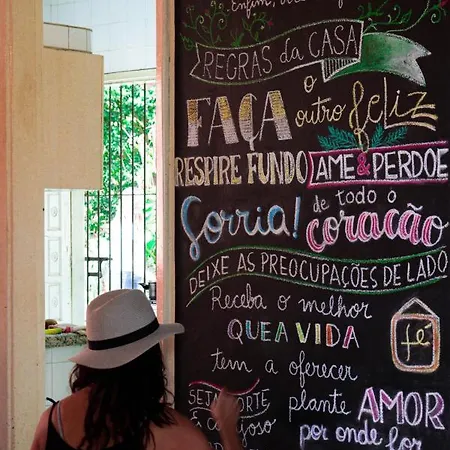 Enfim,
REGRAS da CASA
FAÇA o outro feliz
RESPIRE FUNDO
AME & PERDOE
Sorria! de todo o coração
DEIXE AS PREOCUPAÇÕES DE LADO
Receba o melhor
QUE A VIDA
tem a oferecer
fé
SEJA FORTE
plante AMOR
por onde for